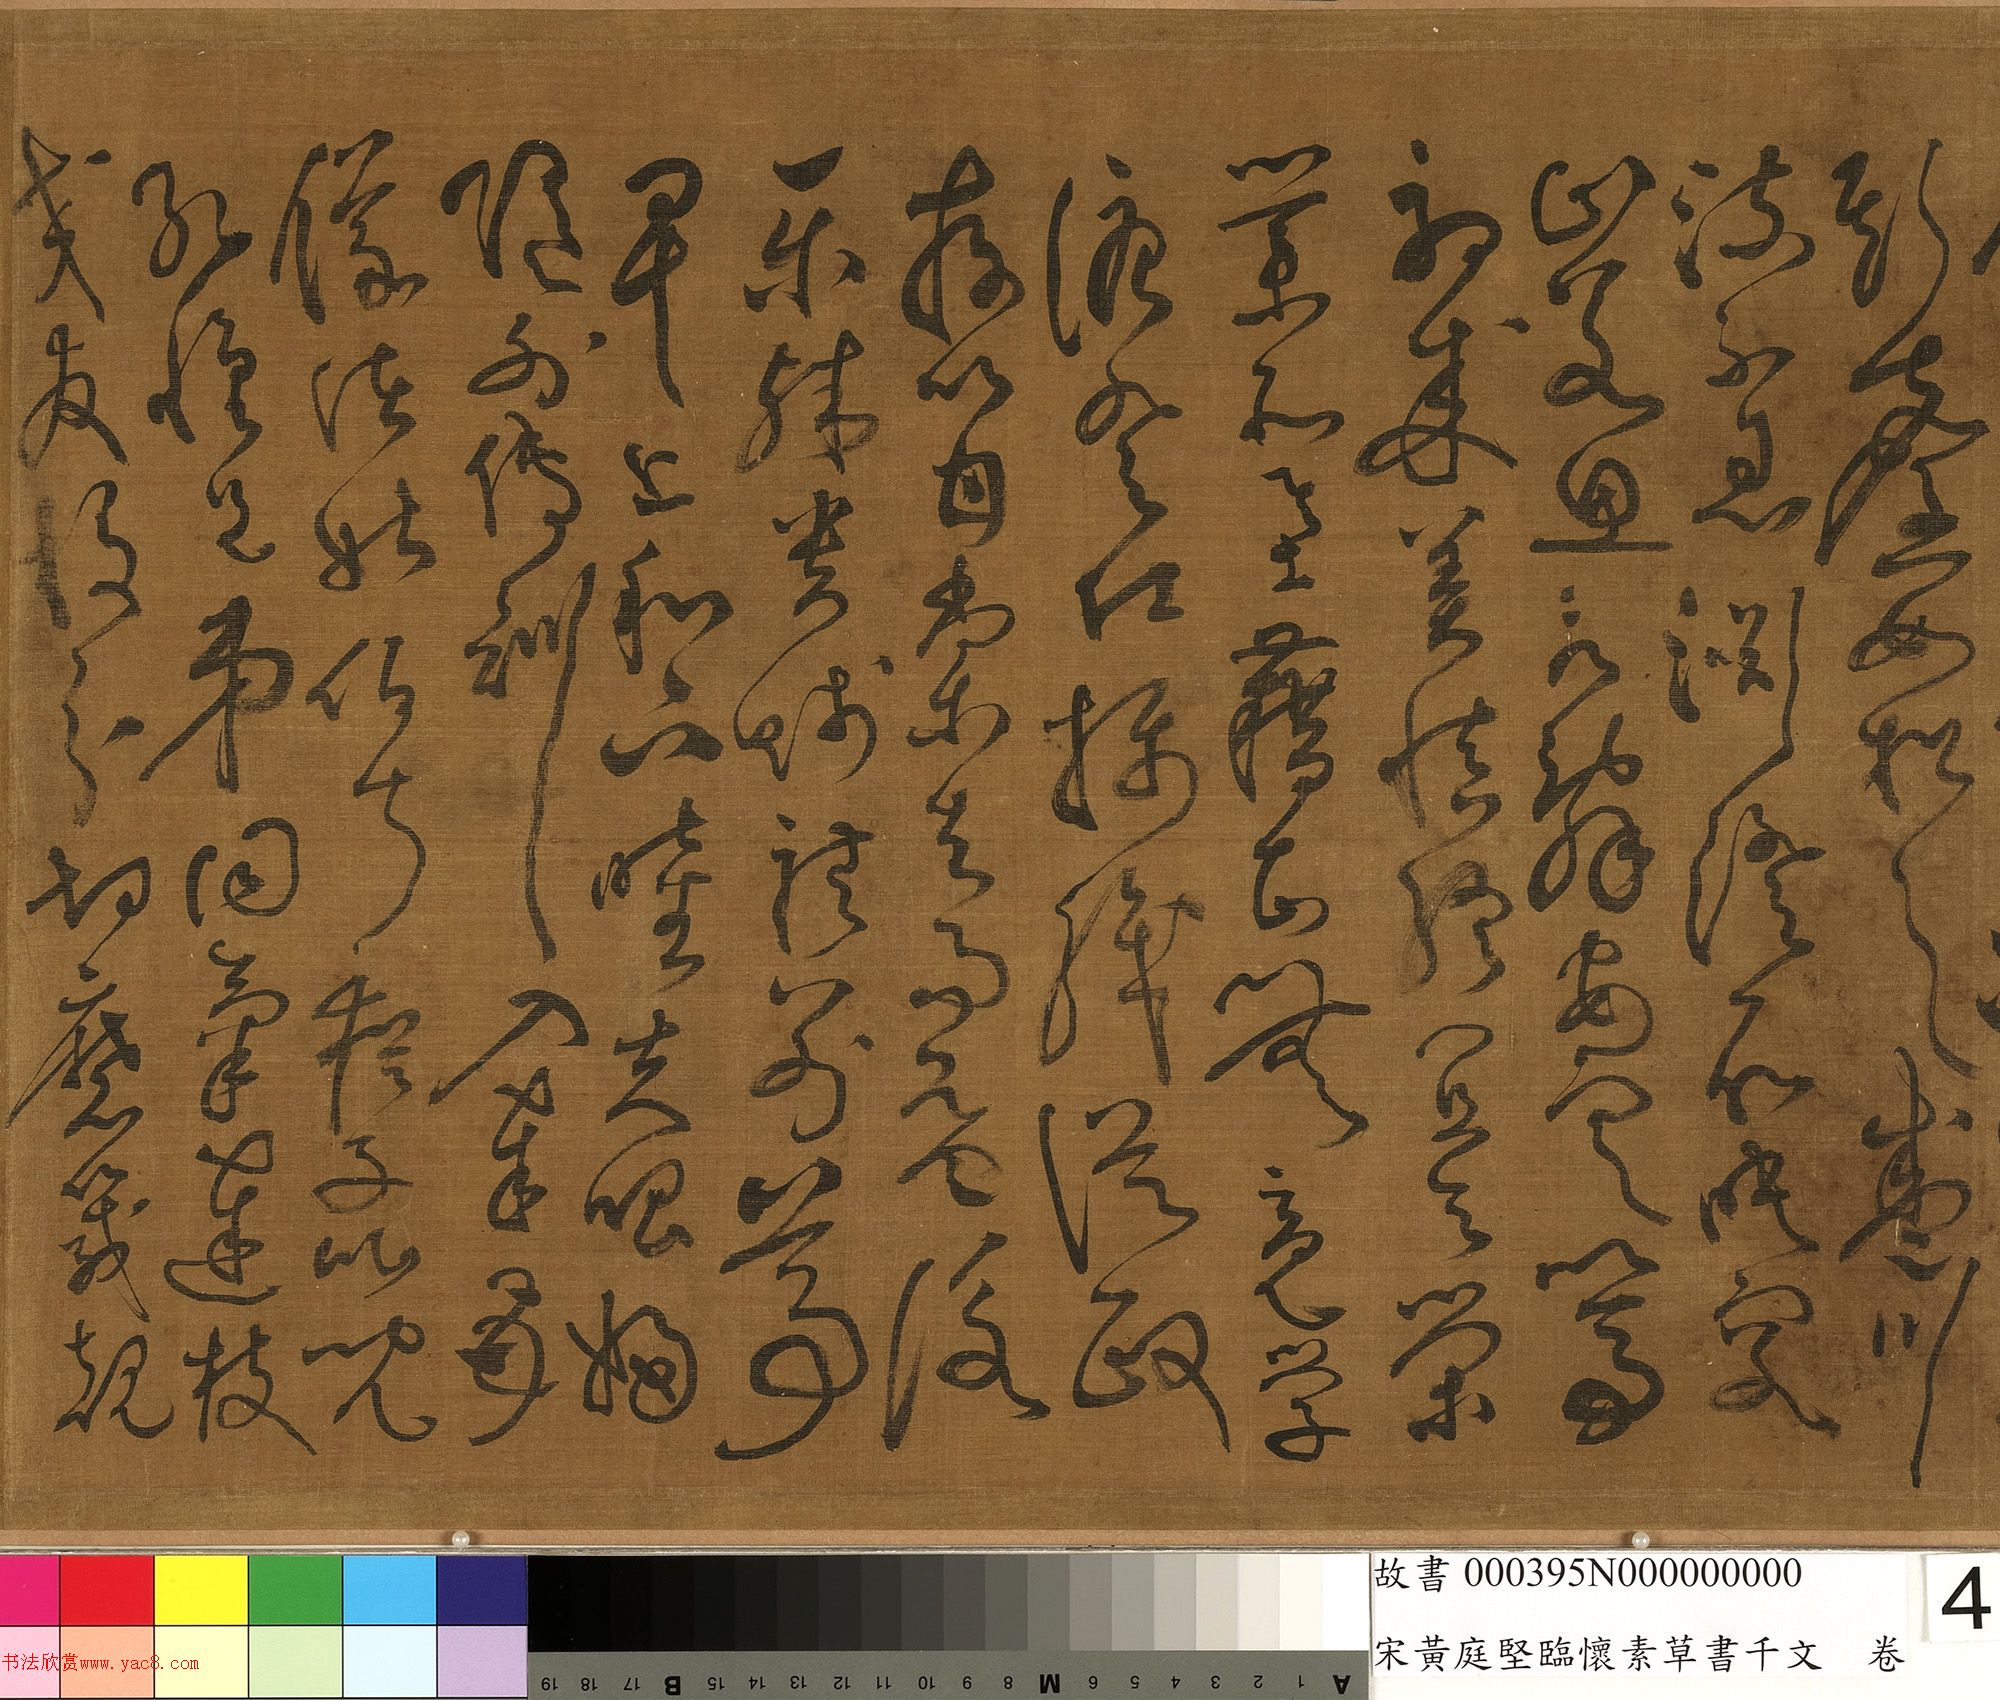 斯馨如松之盛川
流不息淵澄取映容
止若思言辭安定篤
初誠美慎終宜令榮
業所基籍甚無竟學
優登仕攝職從政
存以甘棠去而益詠
樂殊貴賤禮別尊
卑上和下睦夫唱婦
隨外傅訓入奉母
儀諸姑伯叔猶子比兒
孔懷兄弟同氣連枝
交友投分切磨箴規
故書 000395N000000000
宋黃庭堅臨懷素草書千文 卷
4
书法欣赏www.yac8.com
A 1 2 3 4 5 6 M 8 9 10 11 12 13 14 15 B 17 18 19